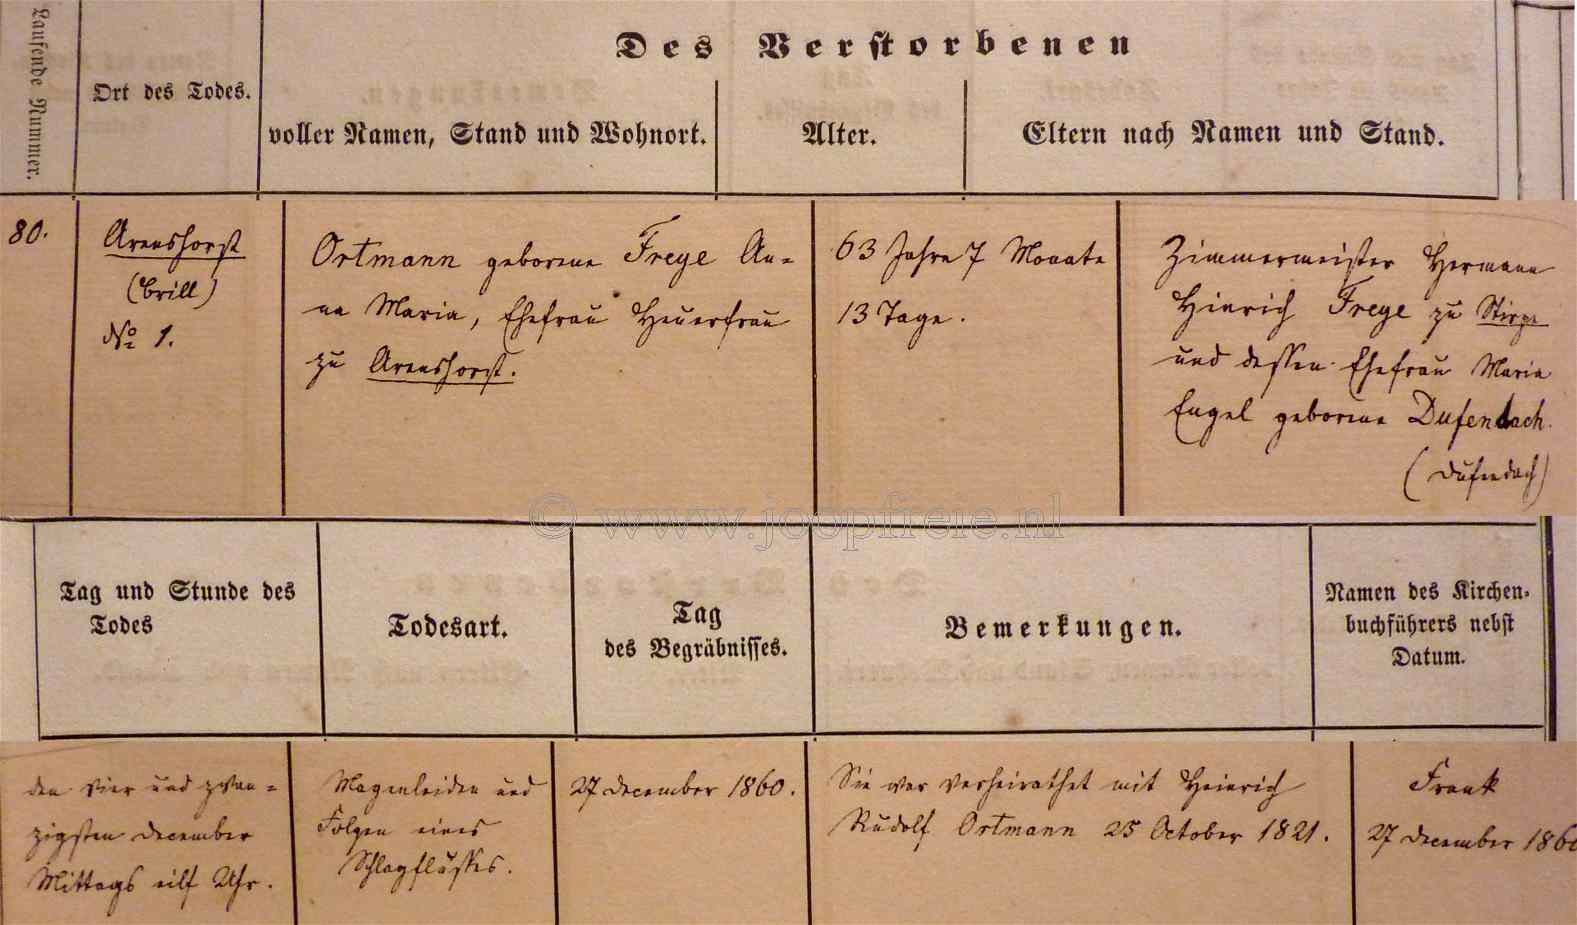 Laufende Nummer.
Ort des Todes.
Des Verstorbenen
voller Namen, Stand und Wohnort.
Alter.
Eltern nach Namen und Stand.
80.
Arenshorst
(Brill)
No 1.
Ortmann geborene Freye An=
na Maria, Ehefrau Heuerfrau
zu Arenshorst.
63 Jahre 7 Monate
13 Tage.
Zimmermeister Hermann
Hinrich Freye zu Stirpe
und dessen Ehefrau Maria
Engel geborene Dufendach.
(Dufendach)
© www.joopfreie.nl
Tag und Stunde des
Todes
Todesart.
Tag
des Begräbnisses.
Bemerkungen.
Namen des Kirchen-
buchführers nebst
Datum.
den vier und zwan=
zigsten December
Mittags eilf Uhr.
Magenleiden und
Folgen eines
Schlagflusses.
27 December 1860.
Sie war verheirathet mit Heinrich
Rudolf Ortmann 25 October 1821.
Frank
27 December 1860